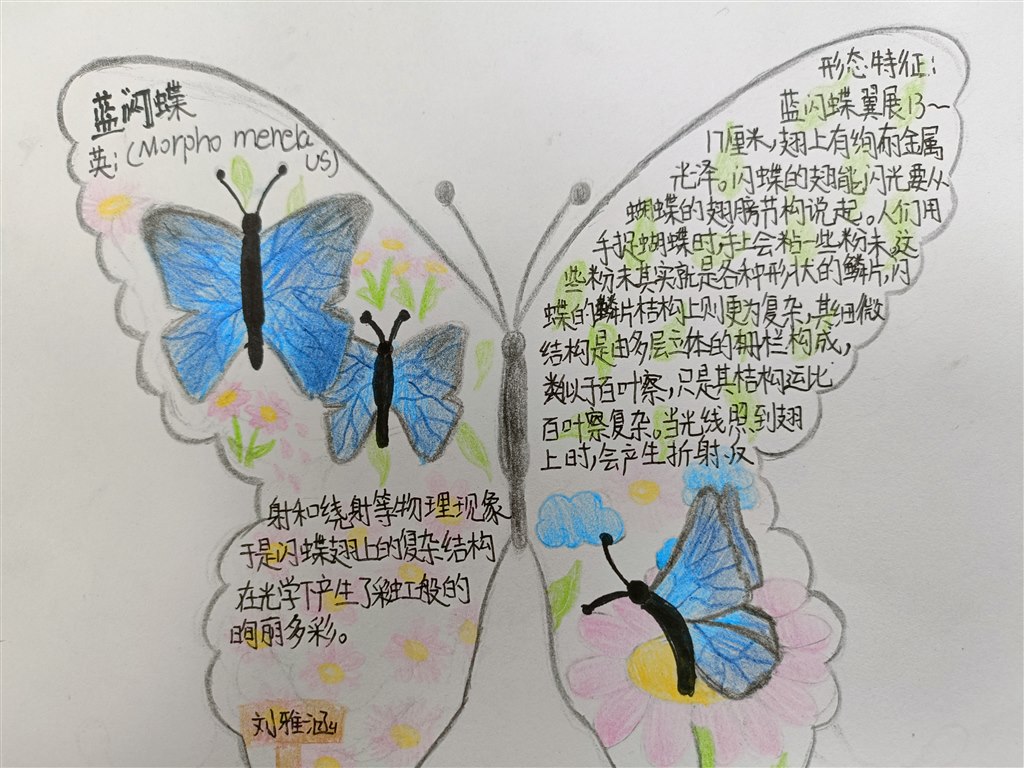 蓝闪蝶
英:(Morpho menela
us)
形态特征:
蓝闪蝶翼展13~
17厘米,翅上有绚丽金属
光泽。闪蝶的翅能闪光要从
蝴蝶的翅膀节构说起。人们用
手捉蝴蝶时,手上会粘一些粉末,这
些粉末其实就是各种形状的鳞片,闪
蝶的鳞片结构上则更为复杂,其细微
结构是由多层立体的栅栏构成,
类似于百叶察,只是其桔构远比
百叶察复杂。当光线照到翅
上时,会产生折射、反
射和绕射等物理现象
于是闪蝶翅上的复杂结构
在光学下产生了彩虹般的
绚丽多彩。
刘雅涵